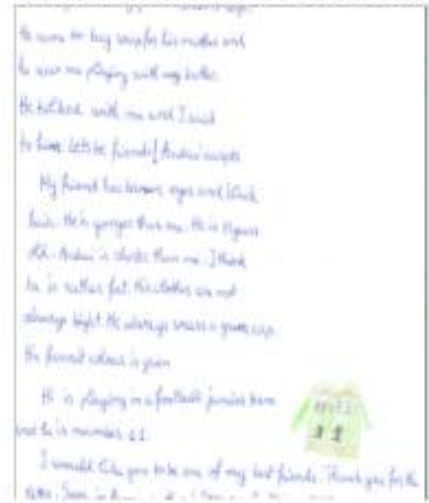 He came to buy some for his mother and
he saw me playing with my brother.
He talked with me and I said
to him: Let's be friends! Andrei accepts
My friend has brown eyes and black
hair. He is younger than me. He is 11 years
old. Andrei is shorter than me. I think
he is rather fat. His clothes are not
always bright. He always wears a green cap.
His favourit colour is green
He is playing in a football junior team
and he is number 11.
I would like you to be one of my best friends. Thank you for the